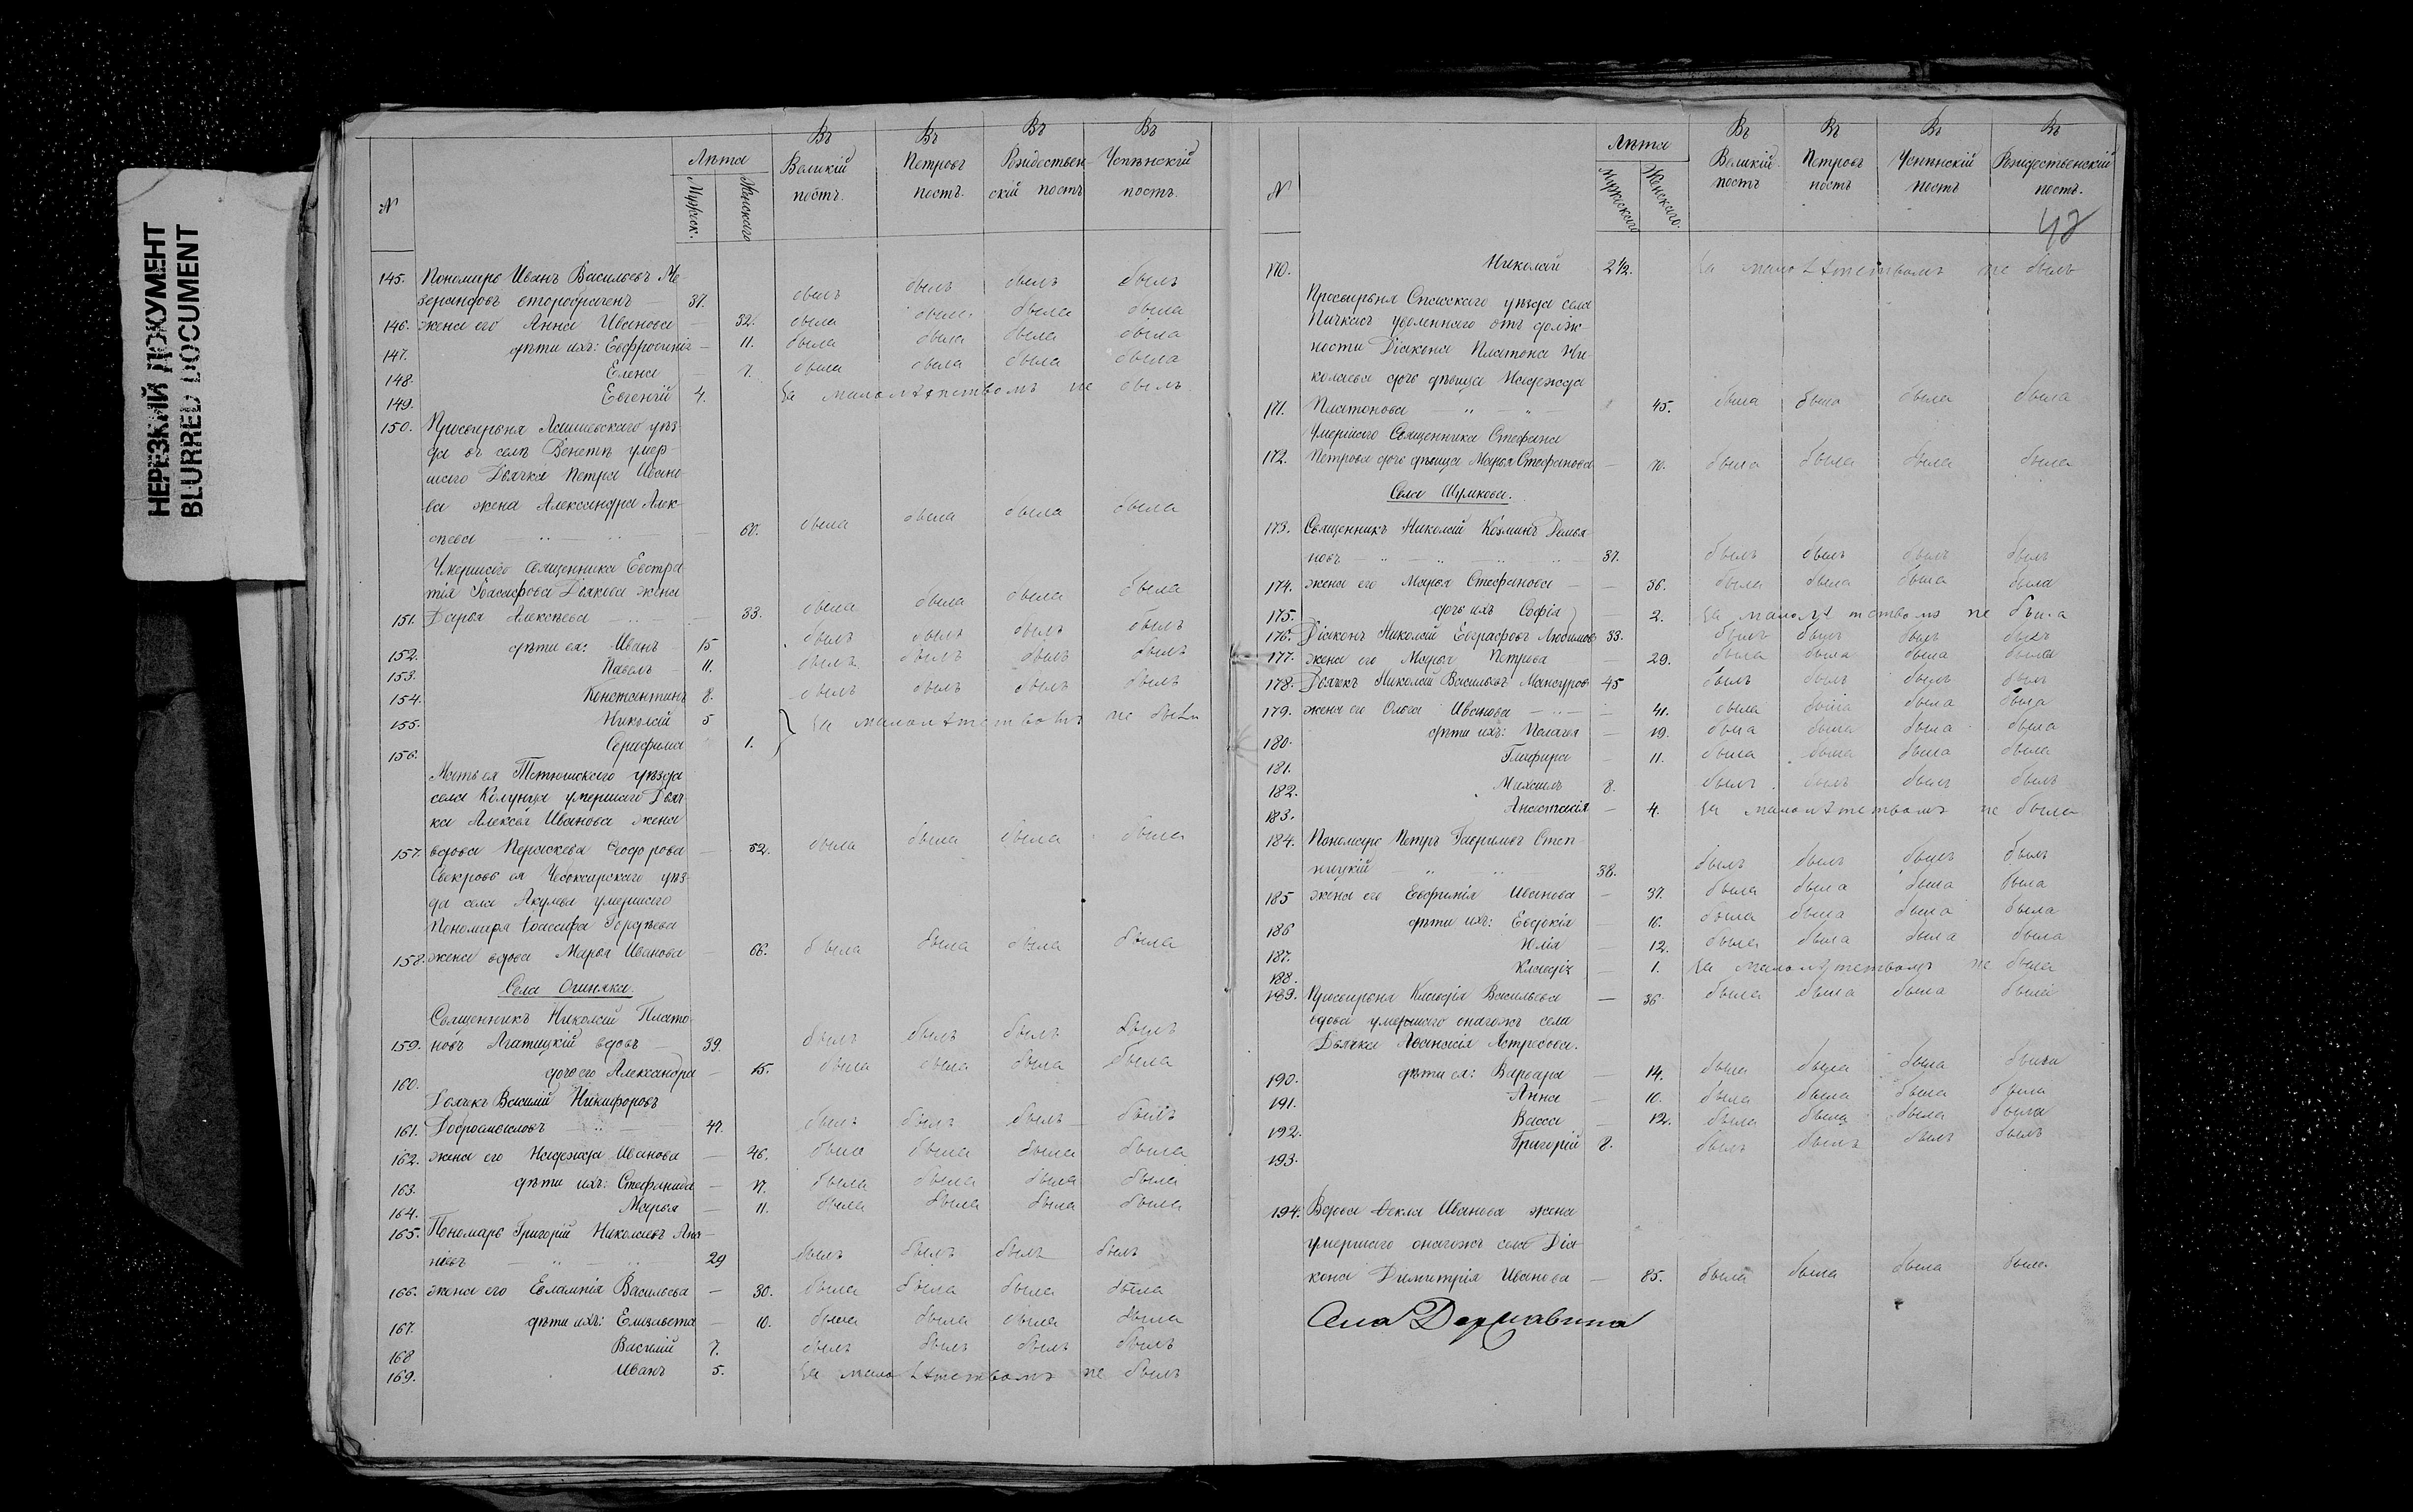 НЕРЕЗКИЙ ДОКУМЕНТ
BLURRED DOCUMENT
N
Лѣта
Мужск.
Женскаго
Въ Великій постъ.
Въ Петровъ постъ.
Въ Рождественскій постъ
Въ Успѣнскій постъ.
145. Пономарь Иванъ Васильевъ
второбраченъ — 37. былъ былъ былъ былъ
146. жена его Анна Иванова — 32. была была была была
147. дѣти ихъ: Евфросинія — 11. была была была была
148. Елена — 7. была была была была
149. Евгеній 4. За малолѣтствомъ не былъ
150. Просвирня Лаишевскаго уѣз-
да въ селѣ Венетѣ умер-
шаго Дьячка Петра Ивано-
ва жена Александра Алек-
сѣева — 60. была была была была
Умершаго священника Евстра-
тія Іоасафова Дьякова жена
151. Дарья Алексѣева — 33. была была была была
152. дѣти ея: Иванъ 15 былъ былъ былъ былъ
153. Павелъ 11. былъ былъ былъ былъ
154. Константинъ 8. былъ былъ былъ былъ
155. Николай 5 За малолѣтствомъ не были
156. Серафима 1.
Мать ея Тетюшскаго уѣзда
села Колунца умершаго Дьяч-
ка Алексѣя Иванова жена
157. вдова Параскева Ѳеодорова — 52. была была была была
Свекровь ея Чебоксарскаго уѣз-
да села Акулева умершаго
Пономаря Іоасафа Гордѣева
158. жена вдова Марья Иванова — 66. была была была была
Села Огиняка.
Священникъ Николай Плато-
159. новъ Агатицкій вдовъ — 39. былъ былъ былъ былъ
160. дочь его Александра — 15. была была была была
Дьячкъ Василій Никифоровъ
161. Добросмысловъ — 47. былъ былъ былъ былъ
162. жена его Надежда Иванова — 46. была была была была
163. дѣти ихъ: Стефанида — 17. была была была была
164. Марья — 11. была была была была
165. Пономарь Григорій Николаевъ Ана-
ньевъ — 29 былъ былъ былъ былъ
166. жена его Евлампія Васильева — 30. была была была была
167. дѣти ихъ: Елизавета — 10. была была была была
168 Василій 7. былъ былъ былъ былъ
169. Иванъ 5. За малолѣтствомъ не былъ
N
Лѣта
Мужескаго
Женскаго.
Въ Великій постъ
Въ Петровъ постъ
Въ Успѣнскій постъ
Въ Рождественскій постъ.
42
170. Николай 2½. За малолѣтствомъ не былъ
Просвирня Спасскаго уѣзда села
Пичкасъ уволеннаго отъ долж-
ности Діакона Платона Ни-
колаева дочь дѣвица Надежда
171. Платонова — 45. была была была была
Умершаго Священника Стефана
172. Петрова дочь дѣвица Марья Стефанова — 70. была была была была
Села Шумкова.
173. Священникъ Николай Козминъ Демья-
новъ — 37. былъ былъ былъ былъ
174. жена его Марья Стефанова — 36. была была была была
175. дочь ихъ Софія — 2. За малолѣтствомъ не была
176. Діаконъ Николай Евграфовъ Любимовъ 33. былъ былъ былъ былъ
177. жена его Марья Петрова — 29. была была была была
178. Дьячкъ Николай Васильевъ Мансуровъ 45 былъ былъ былъ былъ
179. жена его Ольга Иванова — 41. была была была была
180. дѣти ихъ: Пелагея — 19. была была была была
181. Глафира — 11. была была была была
182. Михаилъ 8. былъ былъ былъ былъ
183. Анастасія — 4. За малолѣтствомъ не была
184. Пономарь Петръ Гавриловъ Степ-
ницкій — 38. былъ былъ былъ былъ
185 жена его Евфимія Иванова — 37. была была была была
186 дѣти ихъ: Евдокія — 16. была была была была
187. Юлія — 12. была была была была
188. Клавдія — 1. За малолѣтствомъ не была
189. Просвирня Клавдія Васильева — 36. была была была была
вдова умершаго онагожъ села
Дьячка Аѳанасія Астребова.
190. дѣти ея: Варвара — 14. была была была была
191. Анна — 10. была была была была
192. Васса — 12. была была была была
193. Григорій 8. былъ былъ былъ былъ
194. Вдова Ѳекла Иванова жена
умершаго онагожъ села Діа-
кона Димитрія Иванова — 85. была была была была
Села Державина